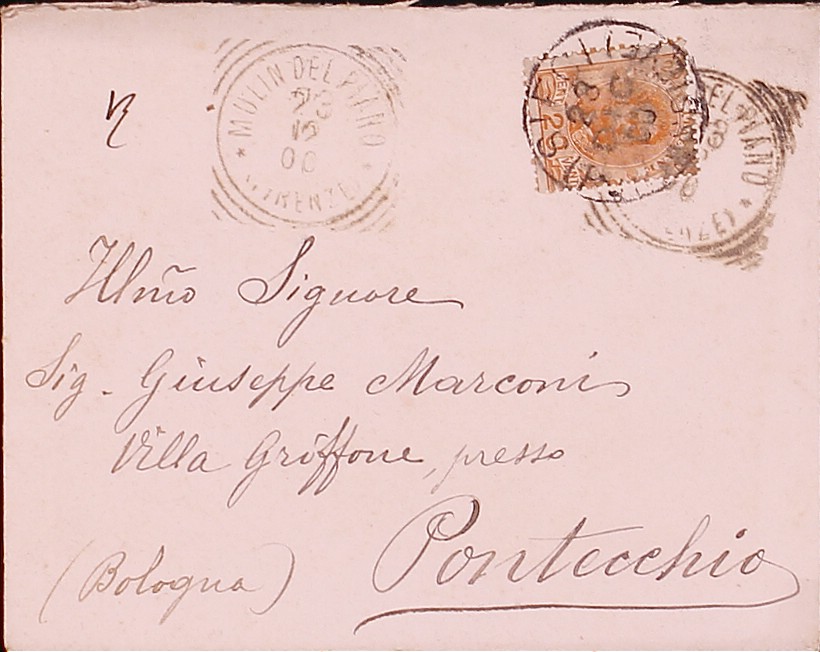 MULIN DEL PIANO
23
12
00
(FIRENZE)
Illmo Signore
Sig. Giuseppe Marconi
Villa Griffone, presso
Pontecchio
(Bologna)